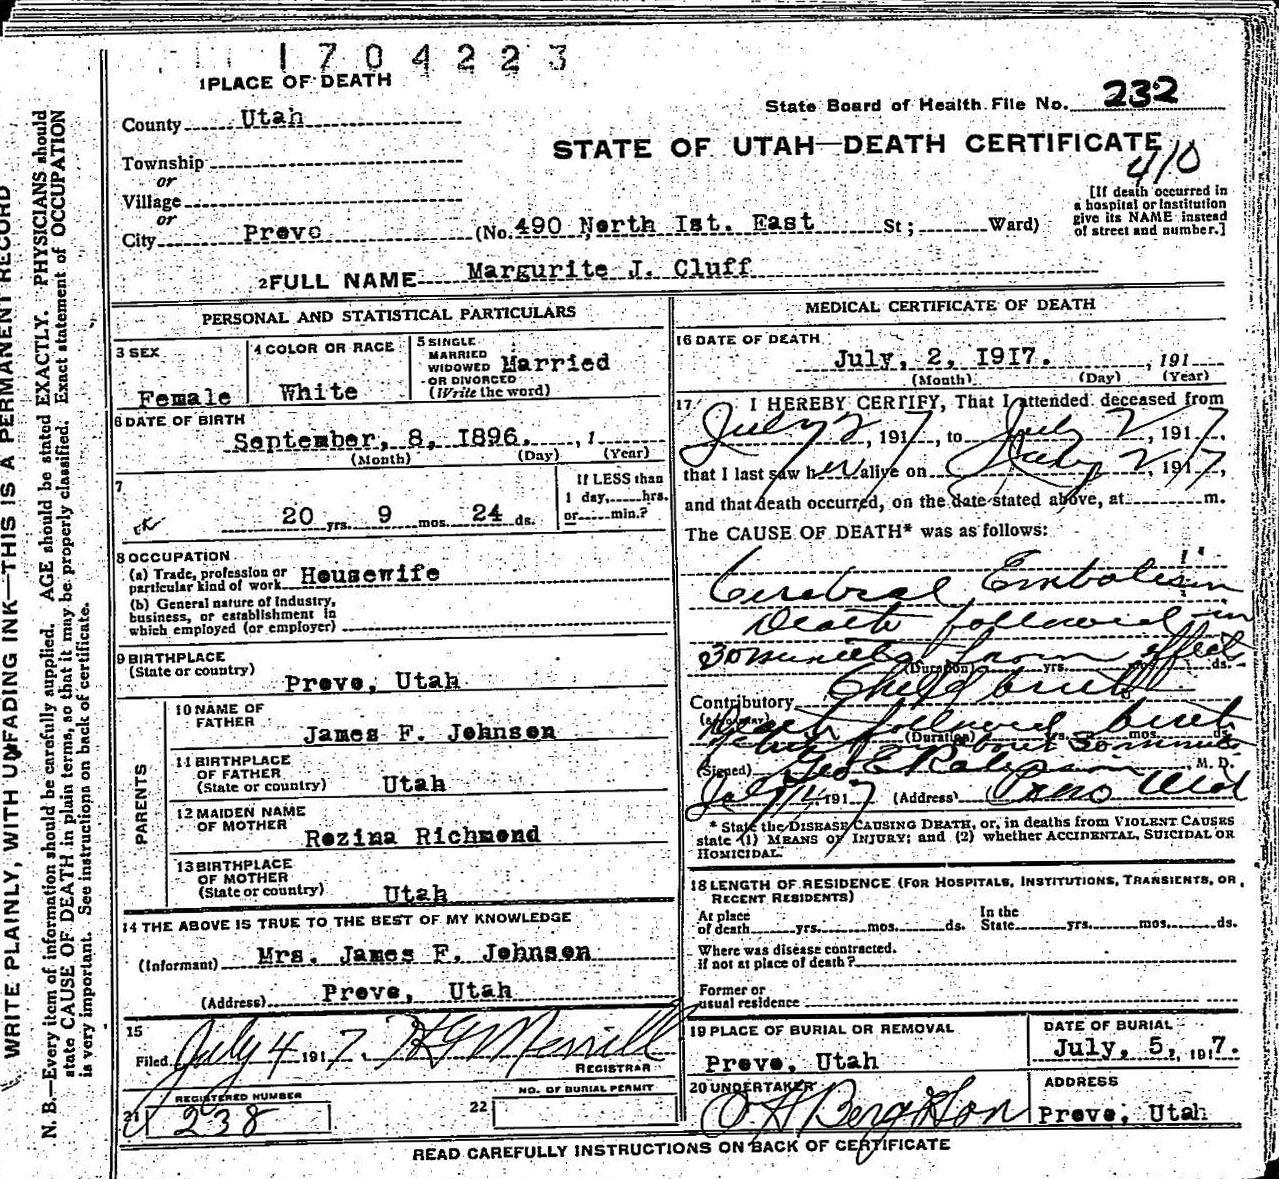 1704223
1 PLACE OF DEATH
State Board of Health File No. 232
County Utah
STATE OF UTAH—DEATH CERTIFICATE
410
Township
or
Village
or
City Provo (No. 490 North Ist. East St; Ward)
[If death occurred in
a hospital or institution
give its NAME instead
of street and number.]
2 FULL NAME Margurite J. Cluff
PERSONAL AND STATISTICAL PARTICULARS
3 SEX
Female
4 COLOR OR RACE
White
5 SINGLE
MARRIED
WIDOWED
OR DIVORCED
(Write the word)
Married
6 DATE OF BIRTH
September, 8, I896. , 1
(Month) (Day) (Year)
7
20 yrs. 9 mos. 24 ds.
If LESS than
1 day, hrs.
or min.?
8 OCCUPATION
(a) Trade, profession or
particular kind of work Housewife
(b) General nature of Industry,
business, or establishment in
which employed (or employer)
9 BIRTHPLACE
(State or country)
Provo, Utah
PARENTS
10 NAME OF
FATHER
James F. Johnson
11 BIRTHPLACE
OF FATHER
(State or country) Utah
12 MAIDEN NAME
OF MOTHER
Rozina Richmond
13 BIRTHPLACE
OF MOTHER
(State or country) Utah
14 THE ABOVE IS TRUE TO THE BEST OF MY KNOWLEDGE
(Informant) Mrs. James F. Johnson
(Address) Provo, Utah
15
Filed July 4 1917. H G Merrill
REGISTRAR
REGISTERED NUMBER
21 238
NO. OF BURIAL PERMIT
22
MEDICAL CERTIFICATE OF DEATH
16 DATE OF DEATH
July, 2, I9I7. , 191
(Month) (Day) (Year)
17 I HEREBY CERTIFY, That I attended deceased from
July 2, 1917, to July 2, 1917,
that I last saw her alive on July 2, 1917,
and that death occurred, on the date stated above, at m.
The CAUSE OF DEATH* was as follows:
Cerebral Embolism
Death followed in
30 minutes from effect
(Duration) yrs. mos. ds.
Contributory Child birth
Death followed birth
(Duration) yrs. mos. ds.
about 30 minutes
(Signed) Geo E Robinson, M. D.
July 4, 1917 (Address) Provo Utah
* State the DISEASE CAUSING DEATH, or, in deaths from VIOLENT CAUSES
state (1) MEANS OF INJURY; and (2) whether ACCIDENTAL, SUICIDAL OR
HOMICIDAL.
18 LENGTH OF RESIDENCE (FOR HOSPITALS, INSTITUTIONS, TRANSIENTS, OR
RECENT RESIDENTS)
At place
of death yrs. mos. ds.
In the
State yrs. mos. ds.
Where was disease contracted.
if not at place of death?
Former or
usual residence
19 PLACE OF BURIAL OR REMOVAL
Provo, Utah
DATE OF BURIAL
July, 5, 1917.
20 UNDERTAKER
O H Berg & Son
ADDRESS
Provo, Utah
READ CAREFULLY INSTRUCTIONS ON BACK OF CERTIFICATE
WRITE PLAINLY, WITH UNFADING INK—THIS IS A PERMANENT RECORD
N. B.—Every item of information should be carefully supplied. AGE should be stated EXACTLY. PHYSICIANS should
state CAUSE OF DEATH in plain terms, so that it may be properly classified. Exact statement of OCCUPATION
is very important. See instructions on back of certificate.